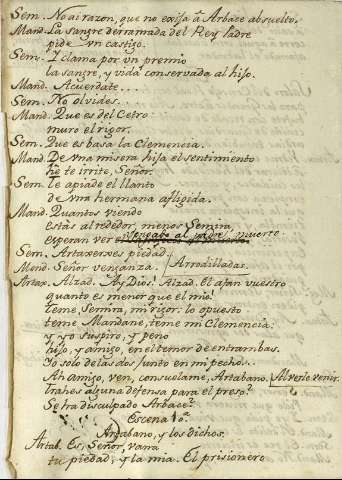 Sem. No ai razon, que no exija a Arbace absuelto.
Mand. La sangre derramada del Rey Padre
pide un castigo.
Sem. I clama por un premio
la sangre, y vida conservada al hijo.
Mand. Acuerdate...
Sem. No olvides...
Mand. Que es del Cetro
muro el rigor.
Sem. Que es basa la Clemencia.
Mand De una misera hija el sentimiento
te irrite, Señor.
Sem. Te apiade el llanto
de una hermana afligida.
Mand. Quantos viendo
estàs al rededor, menos Semira,
vengado al padre muerto.
esperan ver
Sem. Artaxerxes piedad.
Mand. Señor venganza. Arrodilladas.
Artax. Alzad. Ay Dios! Alzad. El afan vuestro
quanto es menor que el mio!
Teme, Semira, mi rigor: lo opuesto
teme Mandane, teme mi Clemencia:
y yo suspiro, y peno
hijo, y amigo, en el temor de entrambas.
Yo solo de las dos junto en mi pecho...
Ah amigo, ven, consuelame, Artabano. Al verle venir.
Trahes alguna defensa para el preso?
Se ha disculpado Arbace?
Escena 10ª
Artabano, y los dichos.
Artab. Es, Señor, vana
tu piedad, y la mia. El prisionero